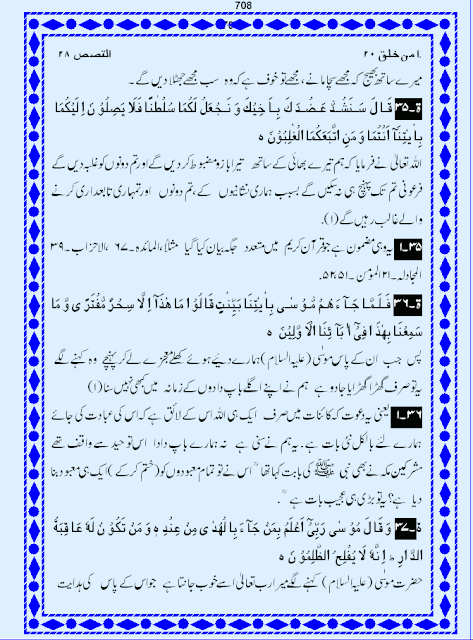 708
امن خلق ۲۰ القصص ۲۸
میرے ساتھ بھیج کہ مجھے سچا مانے، مجھے تو خوف ہے کہ وہ سب مجھے جھٹلا دیں گے۔
ۃ۔۳۵ قَالَ سَنَشُدُّ عَضُدَكَ بِاَخِيْكَ وَ نَجْعَلُ لَكُمَا سُلْطٰنًا فَلَا يَصِلُوْنَ اِلَيْكُمَا
بِاٰيٰتِنَآ اَنْتُمَا وَ مَنِ اتَّبَعَكُمَا الْغٰلِبُوْنَ ہ
اللہ تعالٰی نے فرمایا کہ ہم تیرے بھائی کے ساتھ تیرا بازو مضبوط کر دیں گے اور تم دونوں کو غلبہ دیں گے
فرعونی تم تک پہنچ ہی نہ سکیں گے بسبب ہماری نشانیوں کے، تم دونوں اور تمہاری تابعداری کرنے
والے غالب رہیں گے (۱)۔
۳۵۔۱ یہ وہی مضمون ہے جو قرآن کریم میں متعدد جگہ بیان کیا گیا مثلاً، المائدہ۔ ۶۷، الاحزاب۔ ۳۹
المجادلہ۔ ۲۱ المؤمن۔ ۵۱،۵۲۔
ۃ۔۳۶ فَلَمَّا جَآءَهُمْ مُّوْسٰى بِاٰيٰتِنَا بَيِّنٰتٍ قَالُوْا مَا هٰذَآ اِلَّا سِحْرٌ مُّفْتَرًى وَّ مَا
سَمِعْنَا بِهٰذَا فِيْٓ اٰبَآئِنَا الْاَوَّلِيْنَ ہ
پس جب ان کے پاس موسٰی (علیہ السلام) ہمارے دیئے ہوئے کھلے معجزے لے کر پہنچے وہ کہنے لگے
یہ تو صرف گھڑا گھڑایا جادو ہے ہم نے اپنے اگلے باپ دادوں کے زمانہ میں کبھی نہیں سنا (۱)
۳۶۔۱ یعنی یہ دعوت کہ کائنات میں صرف ایک ہی اللہ اس کے لائق ہے کہ اس کی عبادت کی جائے
ہمارے لئے بالکل نئی بات ہے۔ یہ ہم نے سنی ہے نہ ہمارے باپ دادا اس توحید سے واقف تھے
مشرکین مکہ نے بھی نبی ﷺ کی بابت کہا تھا "اس نے تو تمام معبودوں کو (ختم کر کے) ایک ہی معبود بنا
دیا ہے؟ یہ تو بڑی ہی عجیب بات ہے"۔
ۃ۔۳۷ وَ قَالَ مُوْسٰى رَبِّيْٓ اَعْلَمُ بِمَنْ جَآءَ بِالْهُدٰى مِنْ عِنْدِهٖ وَ مَنْ تَكُوْنُ لَهٗ عَاقِبَةُ
الدَّارِ ؕ اِنَّهٗ لَا يُفْلِحُ الظّٰلِمُوْنَ ہ
حضرت موسٰی (علیہ السلام) کہنے لگے میرا رب تعالٰی اسے خوب جانتا ہے جو اس کے پاس کی ہدایت